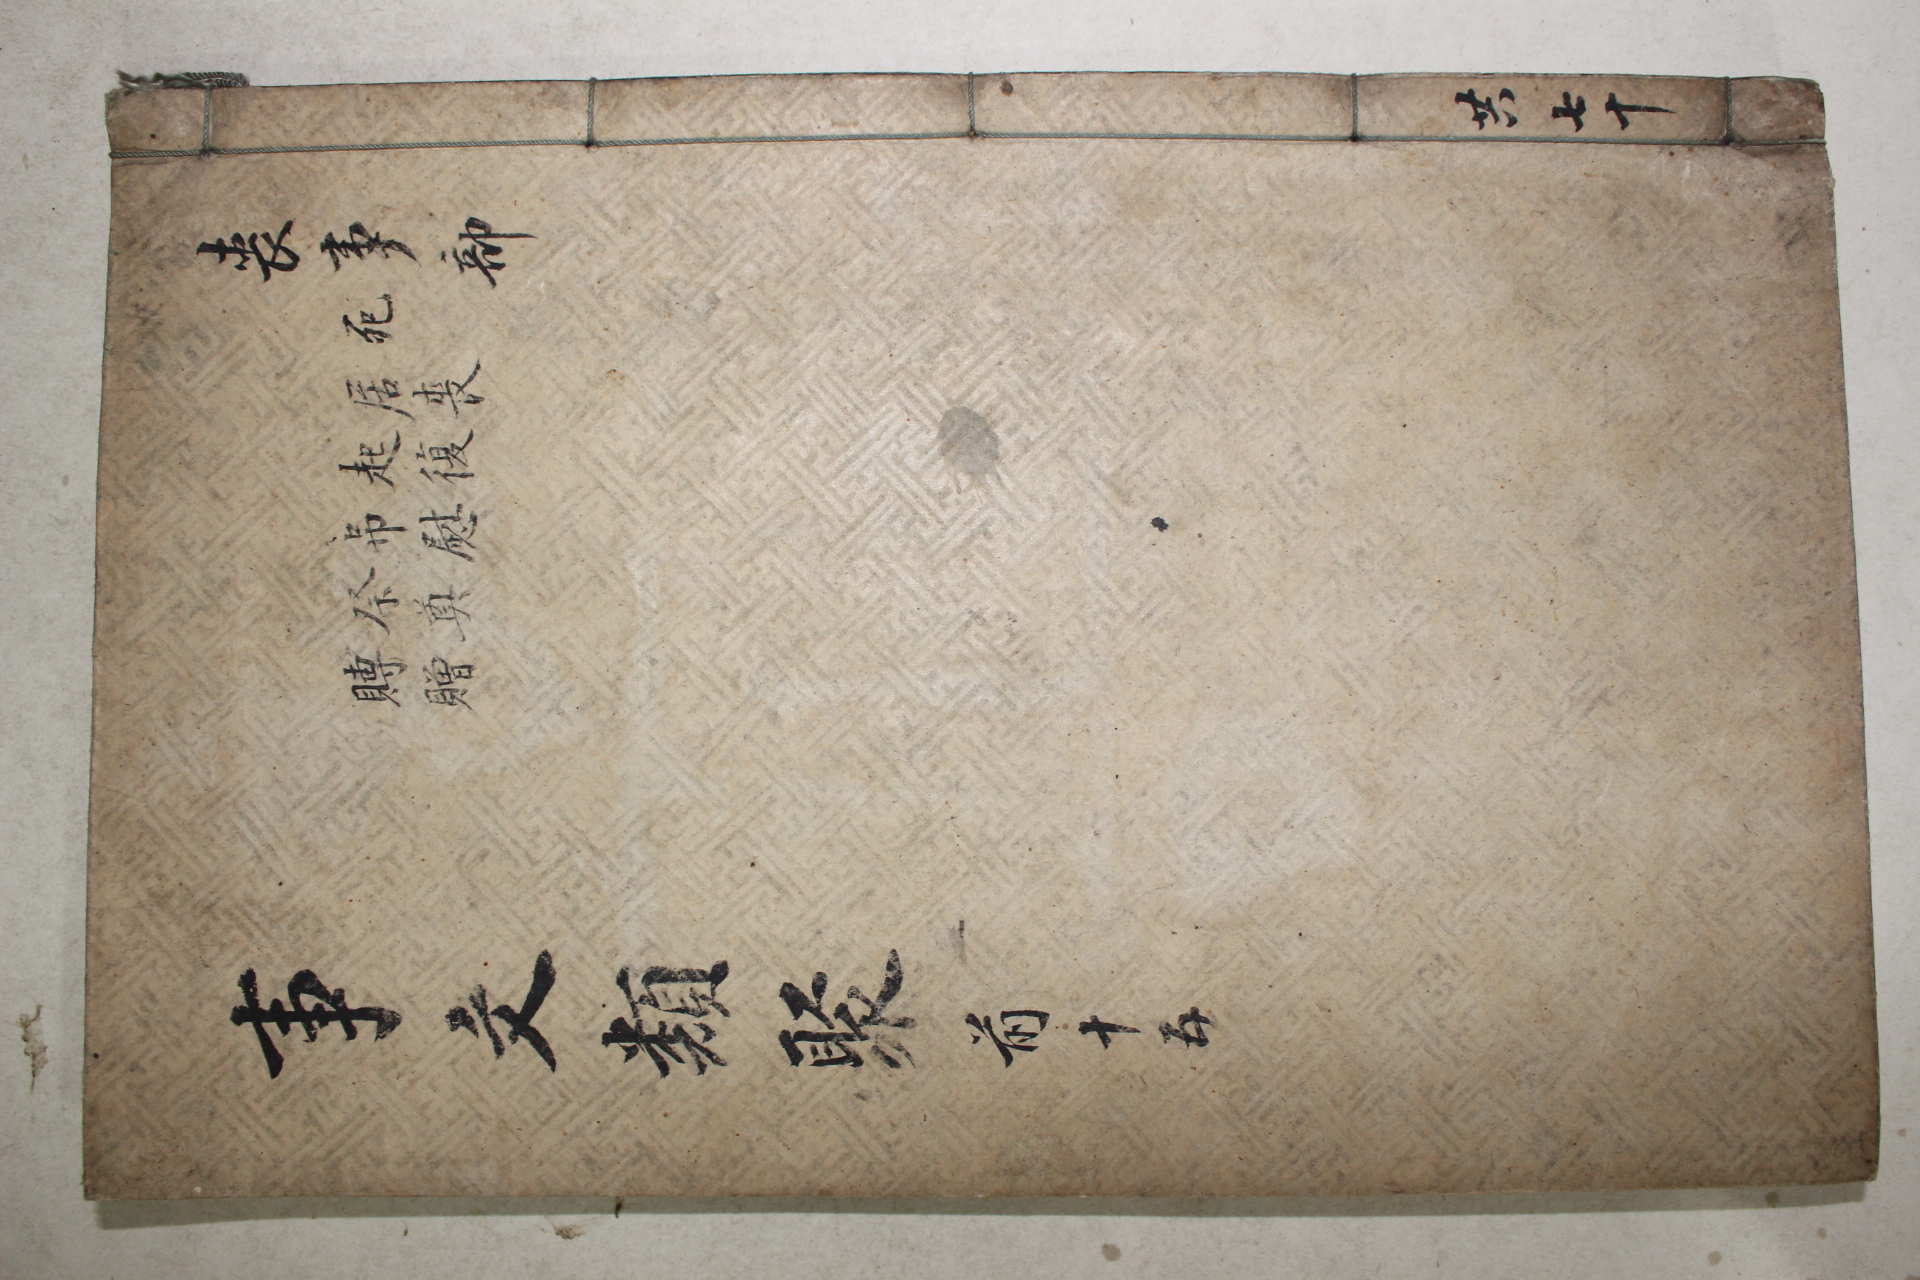 共七十
喪事部
死
居喪
起復
吊慰
祭奠
賻贈
事文類聚 前十五